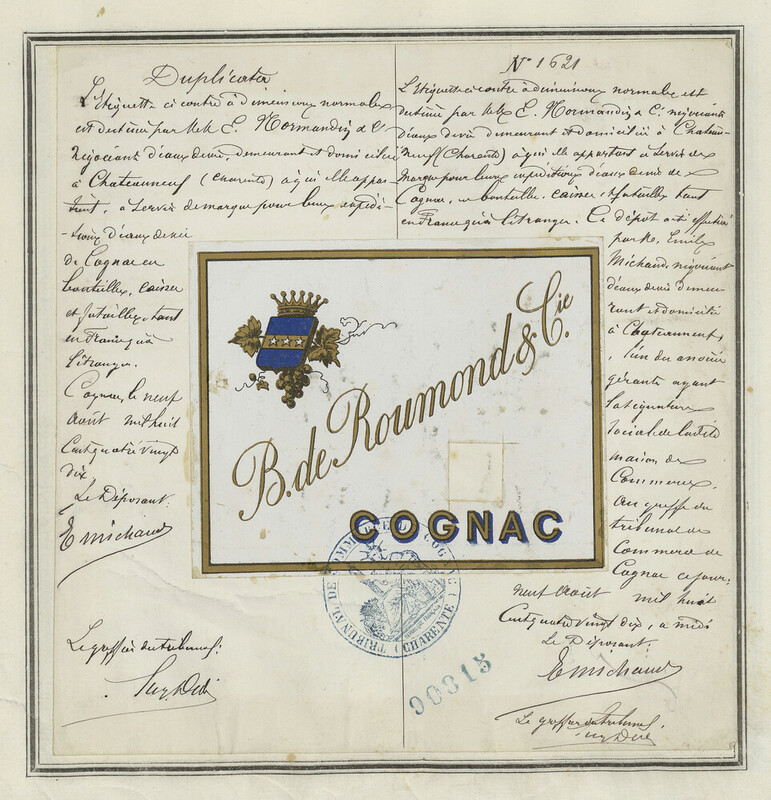 Duplicata
L'Etiquette ci contre à dimensions normales
est destinée par MM E. Normandin & Cie
Négociants d'eaux devie, demeurant et domiciliés
à Chateauneuf (Charente) à qui elle appar-
tient, à servir de marque pour leurs expédi-
-tions d'eaux de vie
de Cognac en
bouteilles, caisses
et futailles tant
en France qu'à
l'étranger.
Cognac, le neuf
Août mil huit
Cent quatre vingt
dix,
Le Déposant.
E Michaud
Le greffier du tribunal:
N° 1621
L'Etiquette ci contre à dimensions normales est
destinée par MM E. Normandin & Cie négociants
d'eaux devie demeurant et domiciliés à Chateau-
neuf (Charente) à qui elle appartient à servir de
Marque pour leurs expéditions d'eaux devie de
Cognac, en bouteilles, caisses et futailles tant
en France qu'à l'étranger. Ce dépôt a été effectué
par Mr. Emile
Michaud, négociant
d'eaux devie demeu-
rant et domicilié
à Chateauneuf,
l'un des associés
gérants ayant
la signature
sociale de la dite
maison de
Commerce.
Au greffe du
tribunal de
Commerce de
Cognac ce jour:
neuf Août mil huit
Cent quatre vingt dix, à midi
Le Déposant:
E Michaud
Le greffier du tribunal:
B. de Roumond & Cie.
COGNAC
TRIBUNAL DE COMMERCE DE COGNAC (CHARENTE)
90315